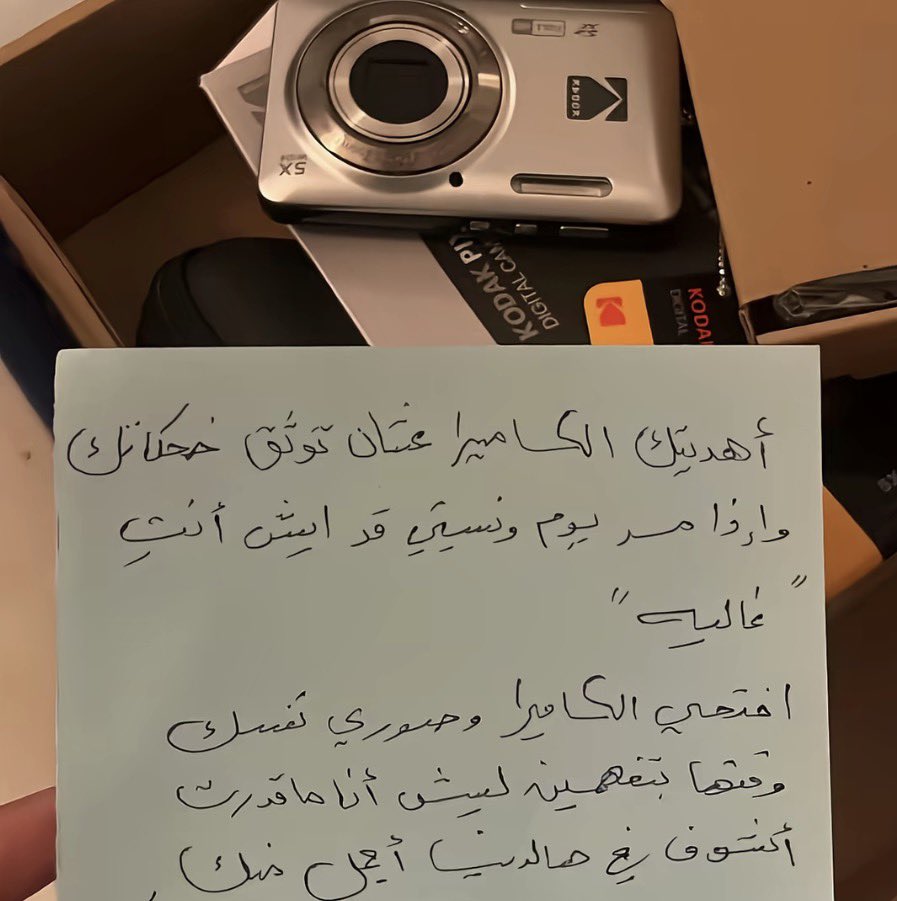 KODAK
5X
KODAK PI
DIGITAL CAM
KODA
DIGITAL
أهديتك الكاميرا عشان توثق ضحكاتك
وإذا مر يوم ونسيتي قد ايش أنتِ
"غاليه"
افتحي الكاميرا وصوري نفسك
وقتها بتفهمين ليش أنا ماقدرت
أشوف في هالدنيا أجمل منك